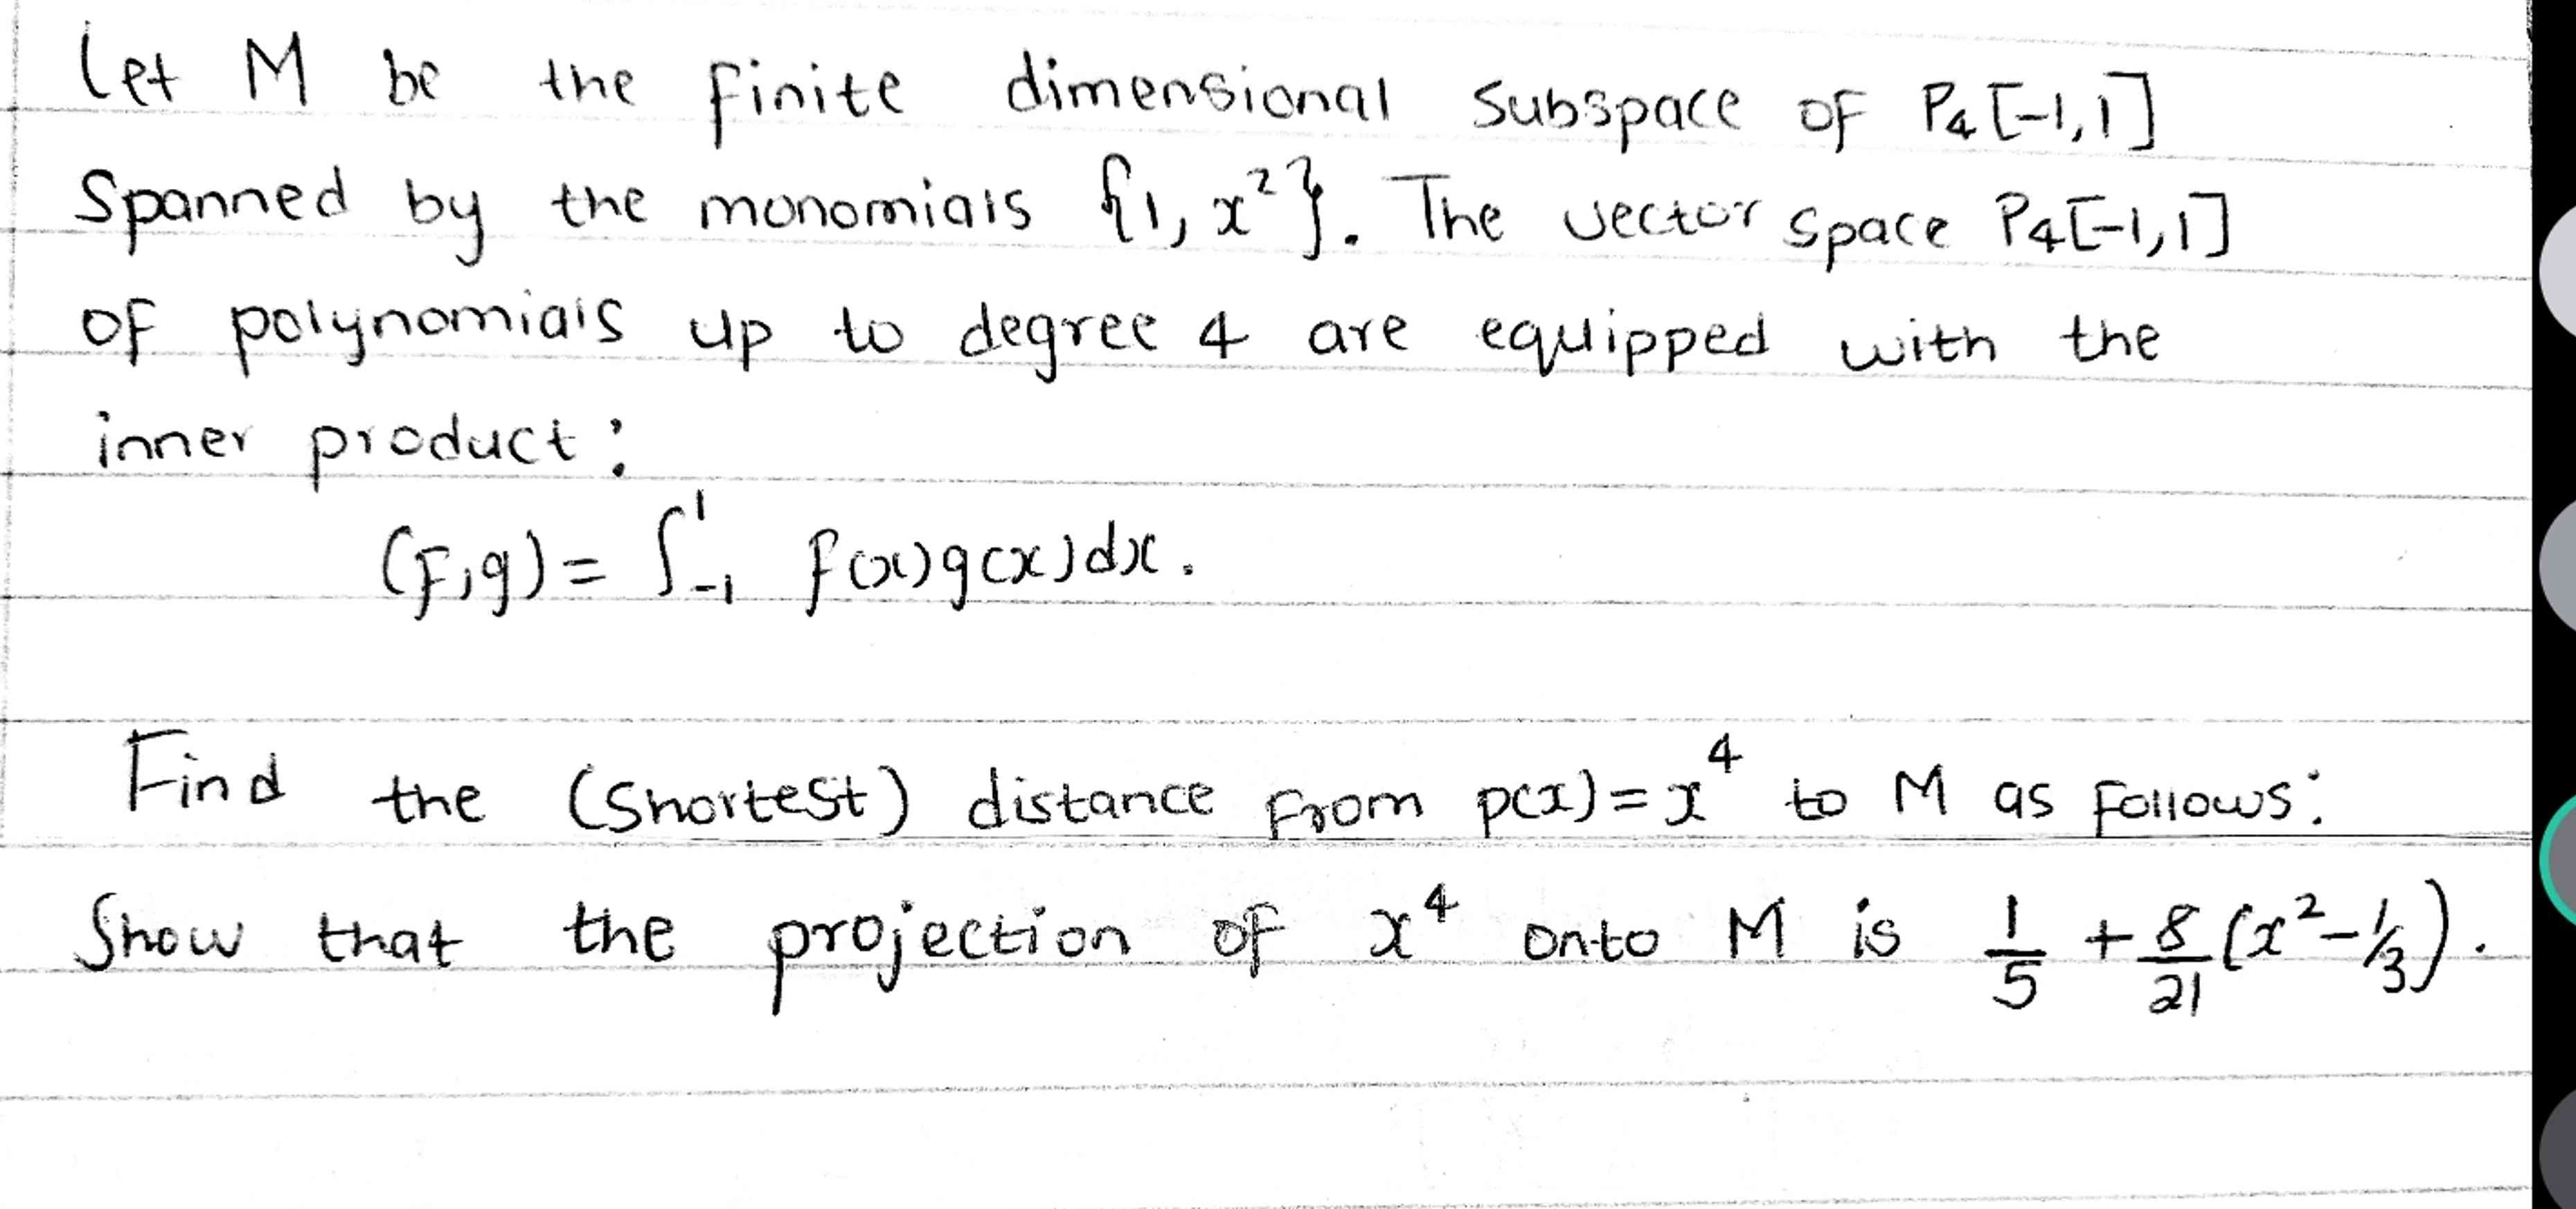 Let M be the finite dimensional subspace of P₄[-1,1]
Spanned by the monomials {1, x²}. The vector space P₄[-1,1]
of polynomials up to degree 4 are equipped with the
inner product:
(f,g) = ∫₋₁¹ f(x)g(x)dx.
Find the (shortest) distance from p(x) = x⁴ to M as follows:
Show that the projection of x⁴ onto M is 1/5 + 8/21 (x² - 1/3).